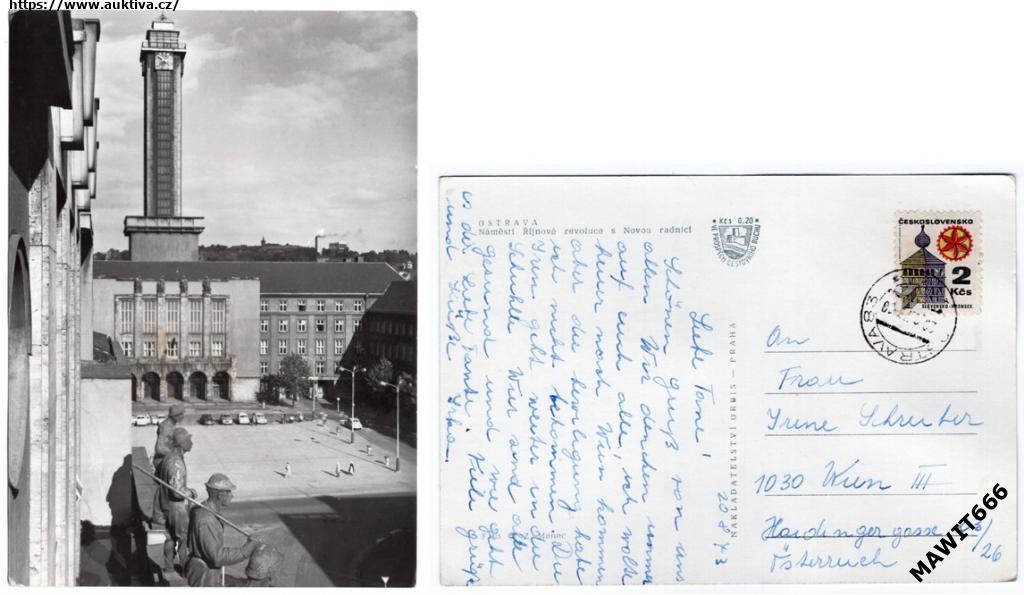 https://www.auktiva.cz/
OSTRAVA
Náměstí Říjnové revoluce s Novou radnicí
Kčs 0,20
VE PROSPĚCH CESTOVNÍHO RUCHU
ČESKOSLOVENSKO
2
Kčs
SLOVENSKO-HRONSEK
OSTRAVA 83
NAKLADATELSTVÍ ORBIS – PRAHA
20.8.73
Liebe Toni!
Schönen gruß von uns
allen Wir denchen imma
auf euch alle, ich wolte
heuer noch Wien kommen
aber die bewiligung habe
ich nicht bekommin Du
Irin gest weiter in die
Schuhle Wier sind alle
gesund und wie geht
es der Liebe Tante. Viele grüße
und
An
Frau
Irene Schreiber
1030 Wien III
Haidinger gasse
/26
Österreich
MAWIT666